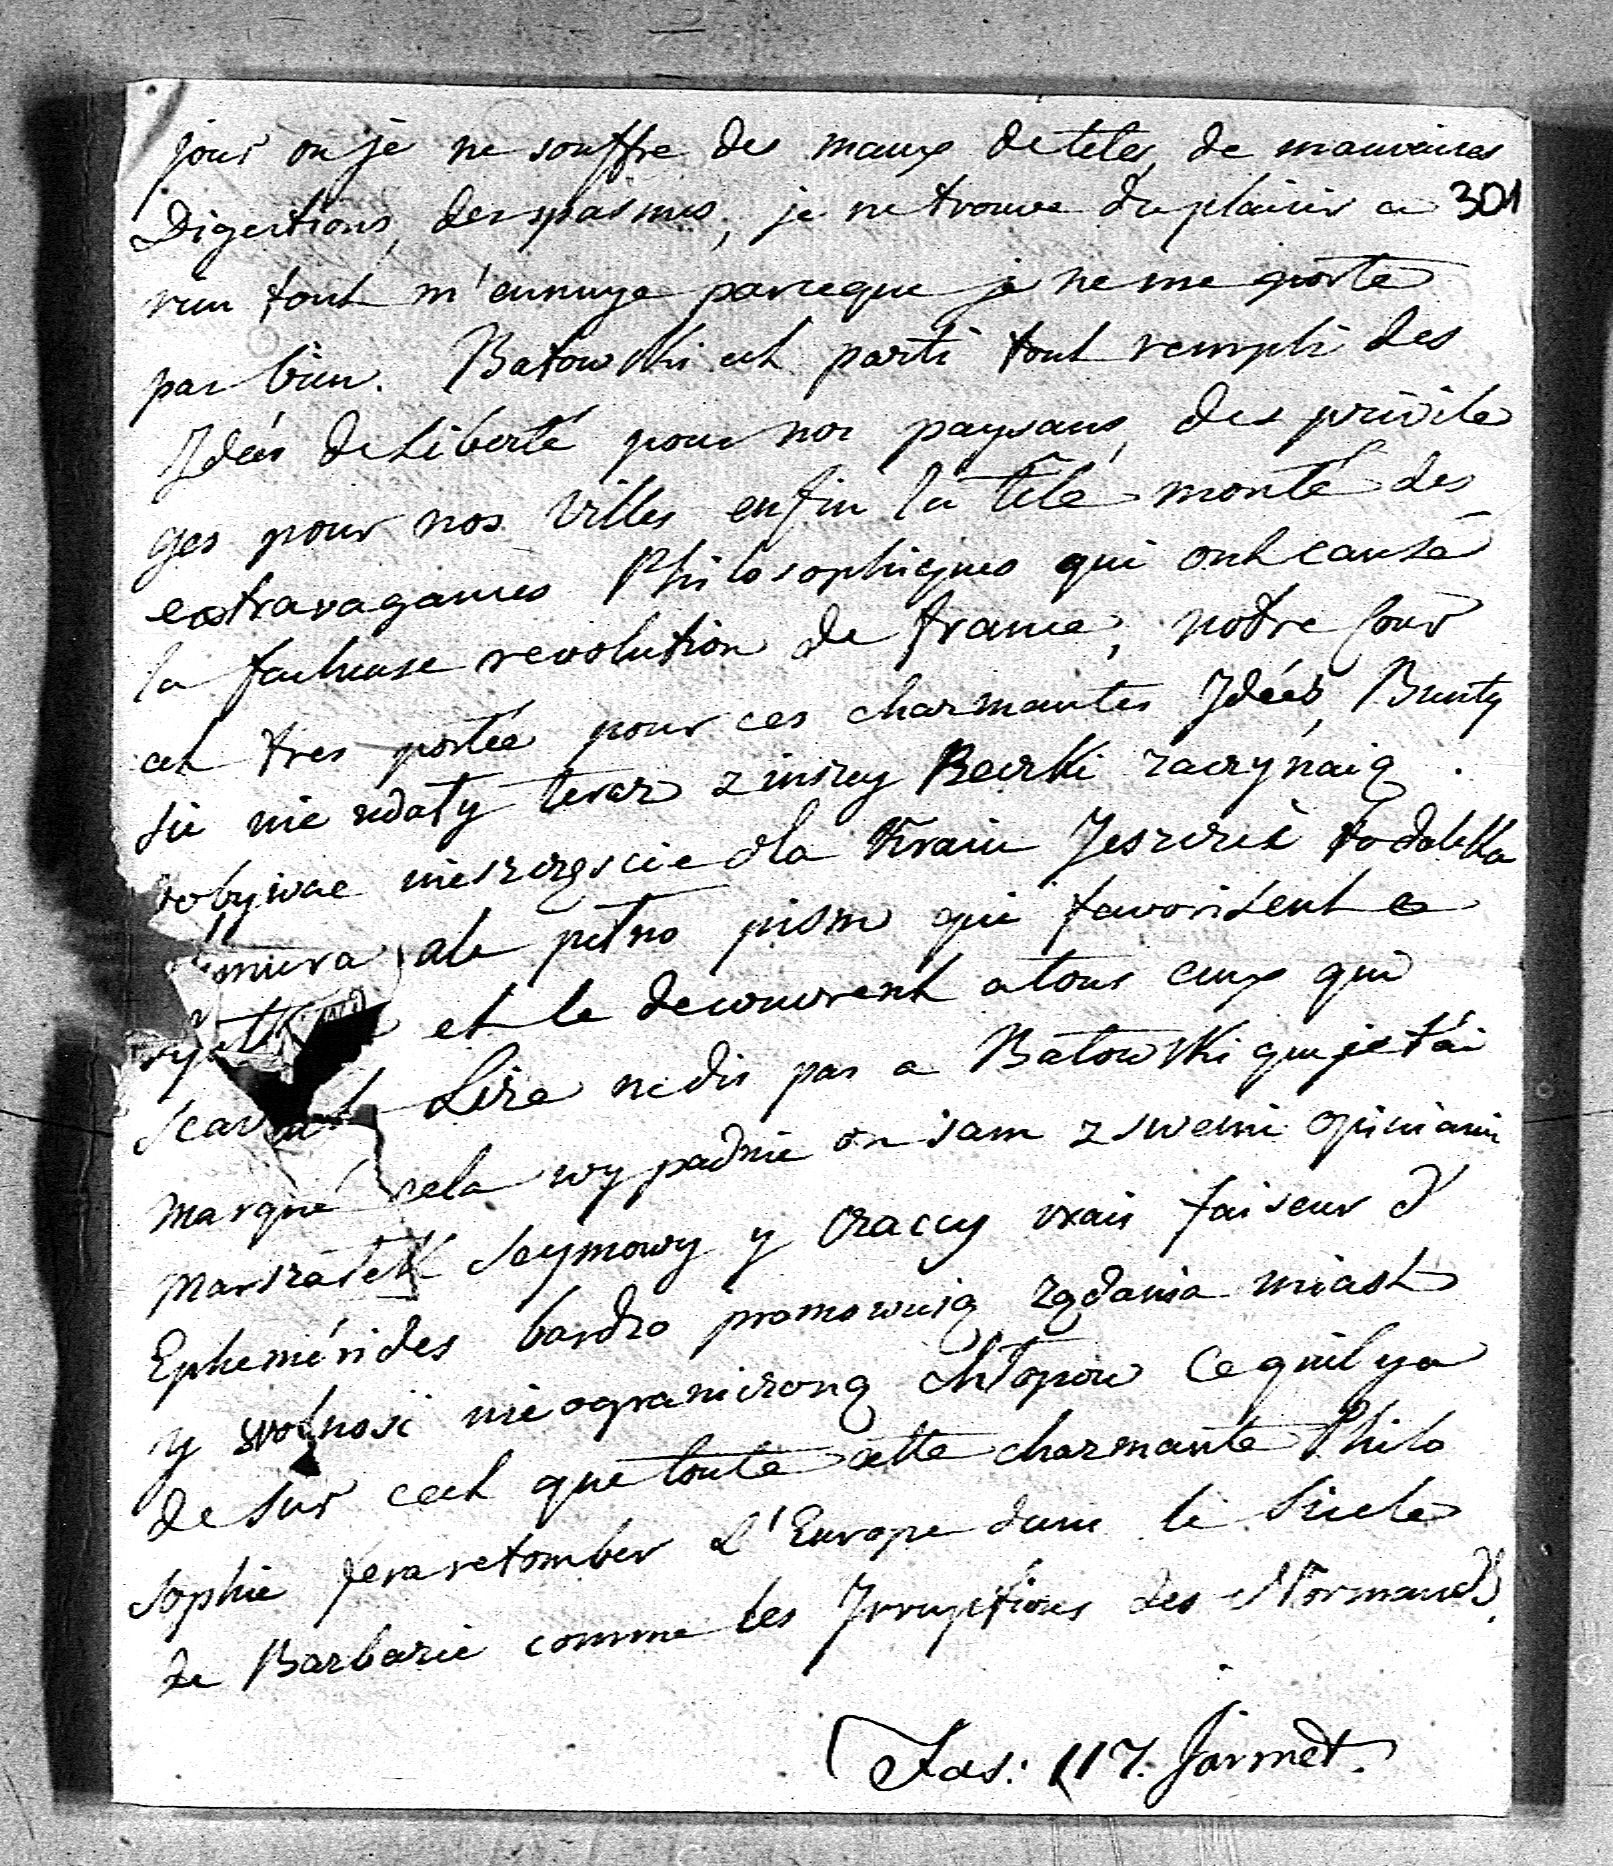 jour ou je ne souffre des maux de tetes, de mauvaises
301
Digestions, des spasmes, je ne trouve du plaisir a
rien tout m'ennuye parceque je ne me porte
pas bien. Batowski est parti tout rempli des
Idées de Liberté pour nos paysans, des privile
ges pour nos Villes enfin la tété monté des
extravagances Philosophiques qui ont causé
la facheuse revolution de france, notre Cour
est tres portée pour ces charmantes Idées, Bunty
sie nie udały teraz z inszey Beczki zaczynaią
dobywac nieszczęscie dla Kraiu Jeszcze to daleka
miera ale pełno pism qui favorisent ce
et le decouvrent a tous ceux qui
Lire ne dis pas a Batowski que je t'ai
marqué cela wypadnie on sam z swemi opiniami
Marszałek Seymowy y Czaccy vrais faiseur d'
Ephemérides bardzo promowuią żądania miast
y wolnosc nieograniczoną chłopow Ce qu'il y a
de sur cest que toute cette charmante Philo
sophie fera retomber l'Europe dans le Siecle
de Barbarie comme les Irruptions des Normands.
Fas: 117. Jarmet.